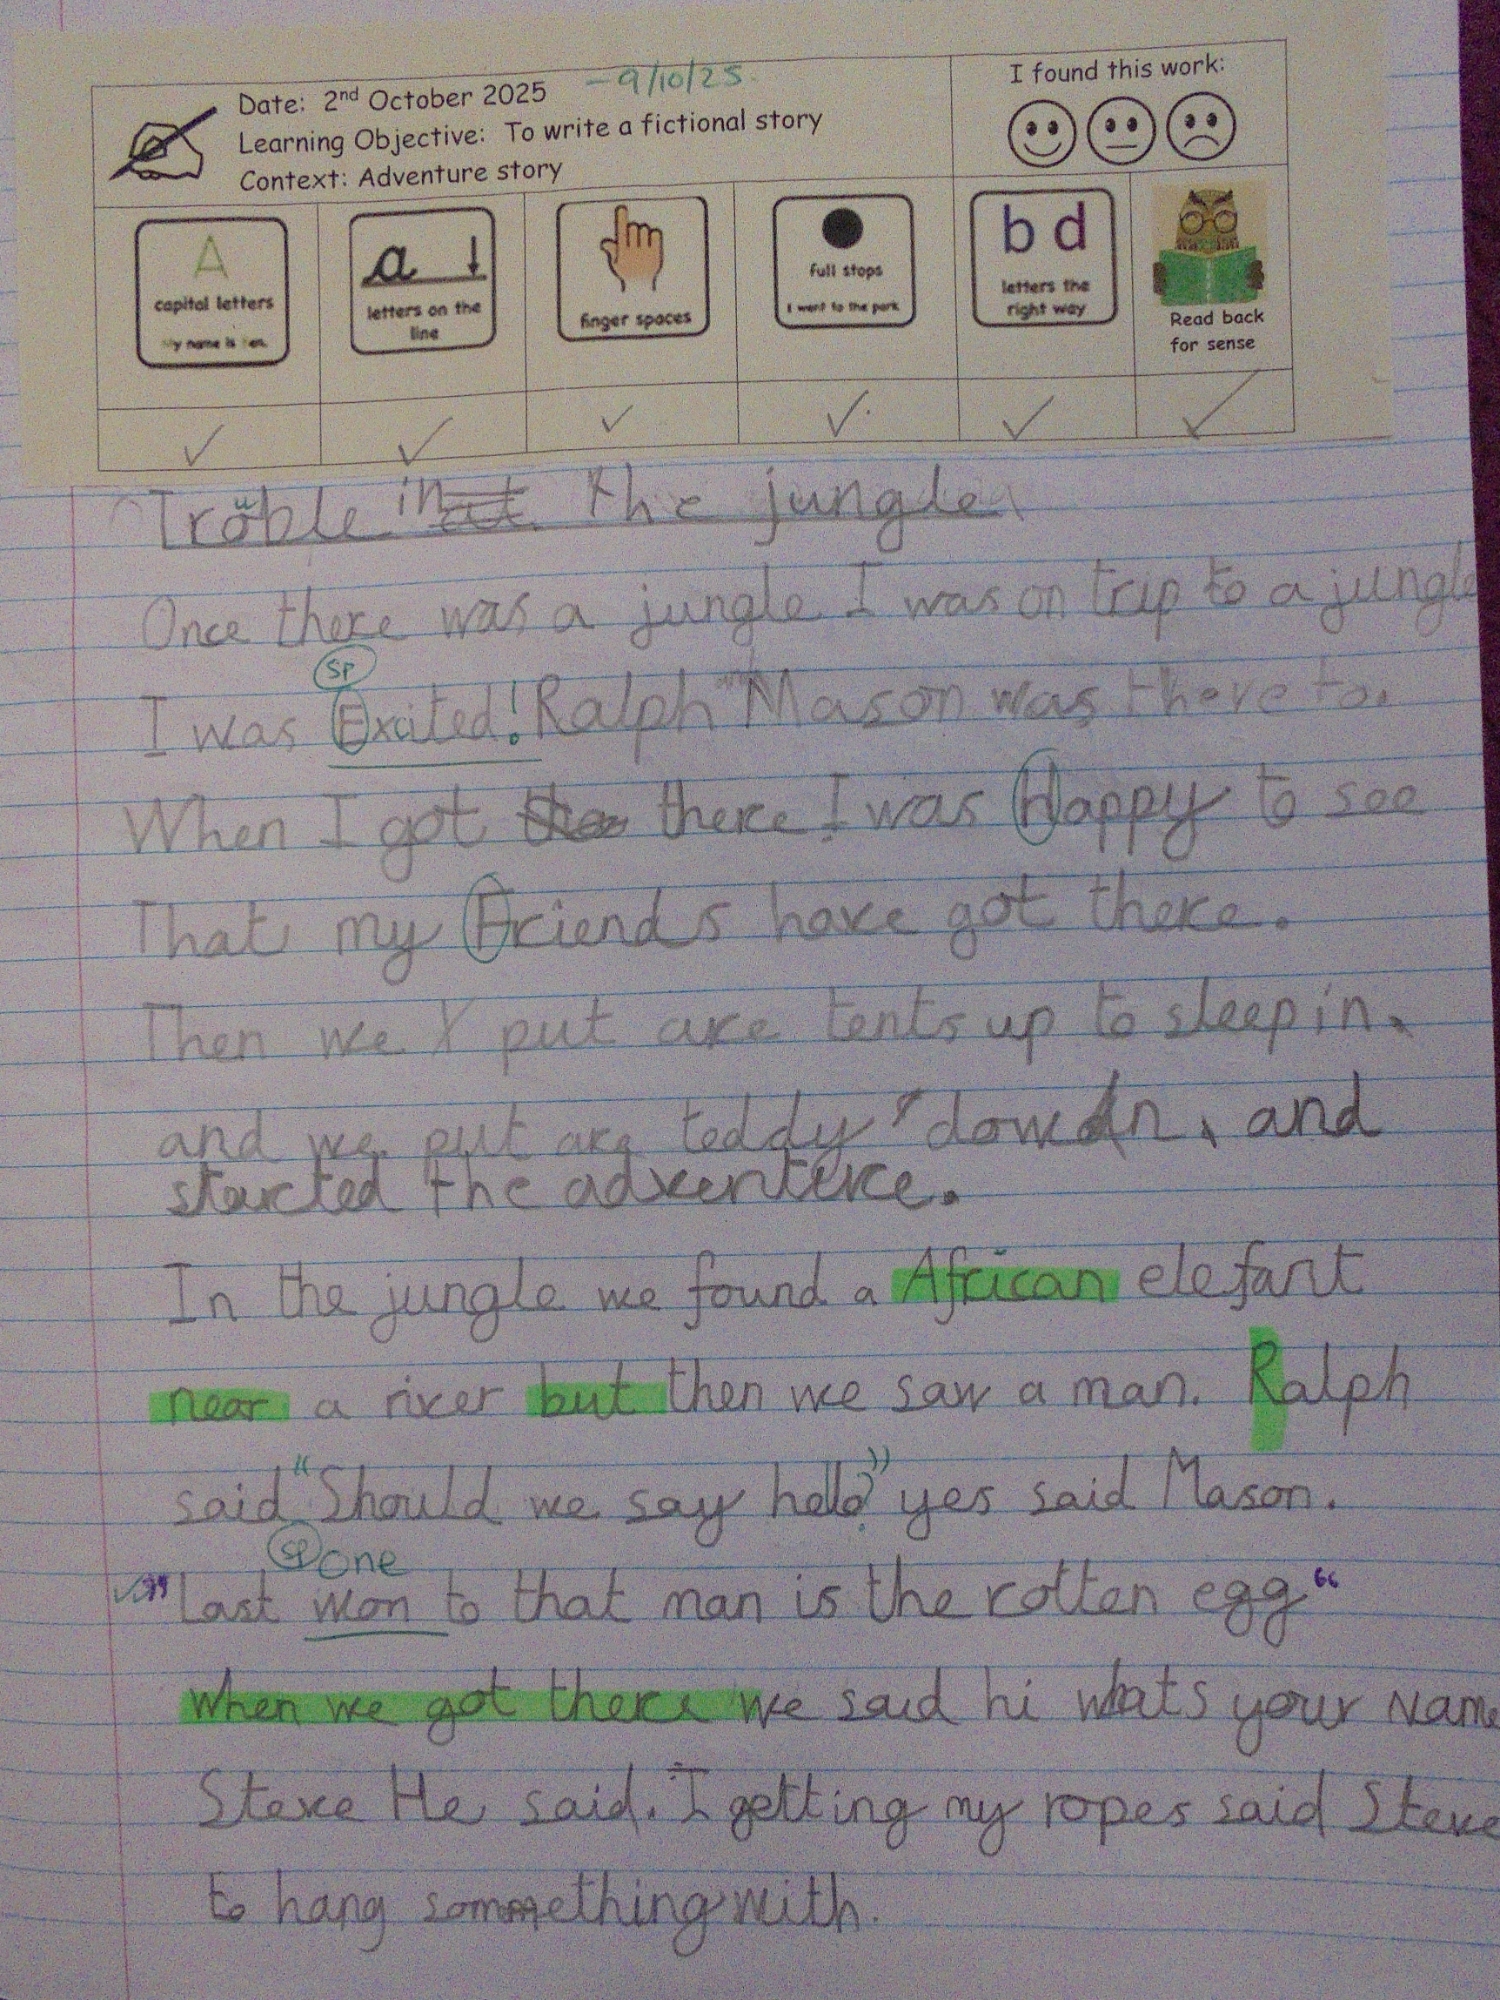 Date: 2nd October 2025 - 9/10/25
Learning Objective: To write a fictional story
Context: Adventure story
I found this work:
A
capital letters
My name is
a
letters on the
line
finger spaces
full stops
I went to the park.
b d
letters the
right way
Read back
for sense
Trouble in at the jungle
Once there was a jungle I was on trip to a jungle
SP
I was Excited! Ralph Mason was there to.
When I got there I was Happy to see
That my Friends have got there.
Then we put are tents up to sleep in.
and we put are teddy's down, and
started the adventere.
In the jungle we found a African elefant
near a river but then we saw a man. Ralph
said "Should we say hello?" yes said Mason.
SP one
"Last won to that man is the rotten egg"
when we got there we said hi whats your Name
Steve He said. I getting my ropes said Steve
to hang something with.